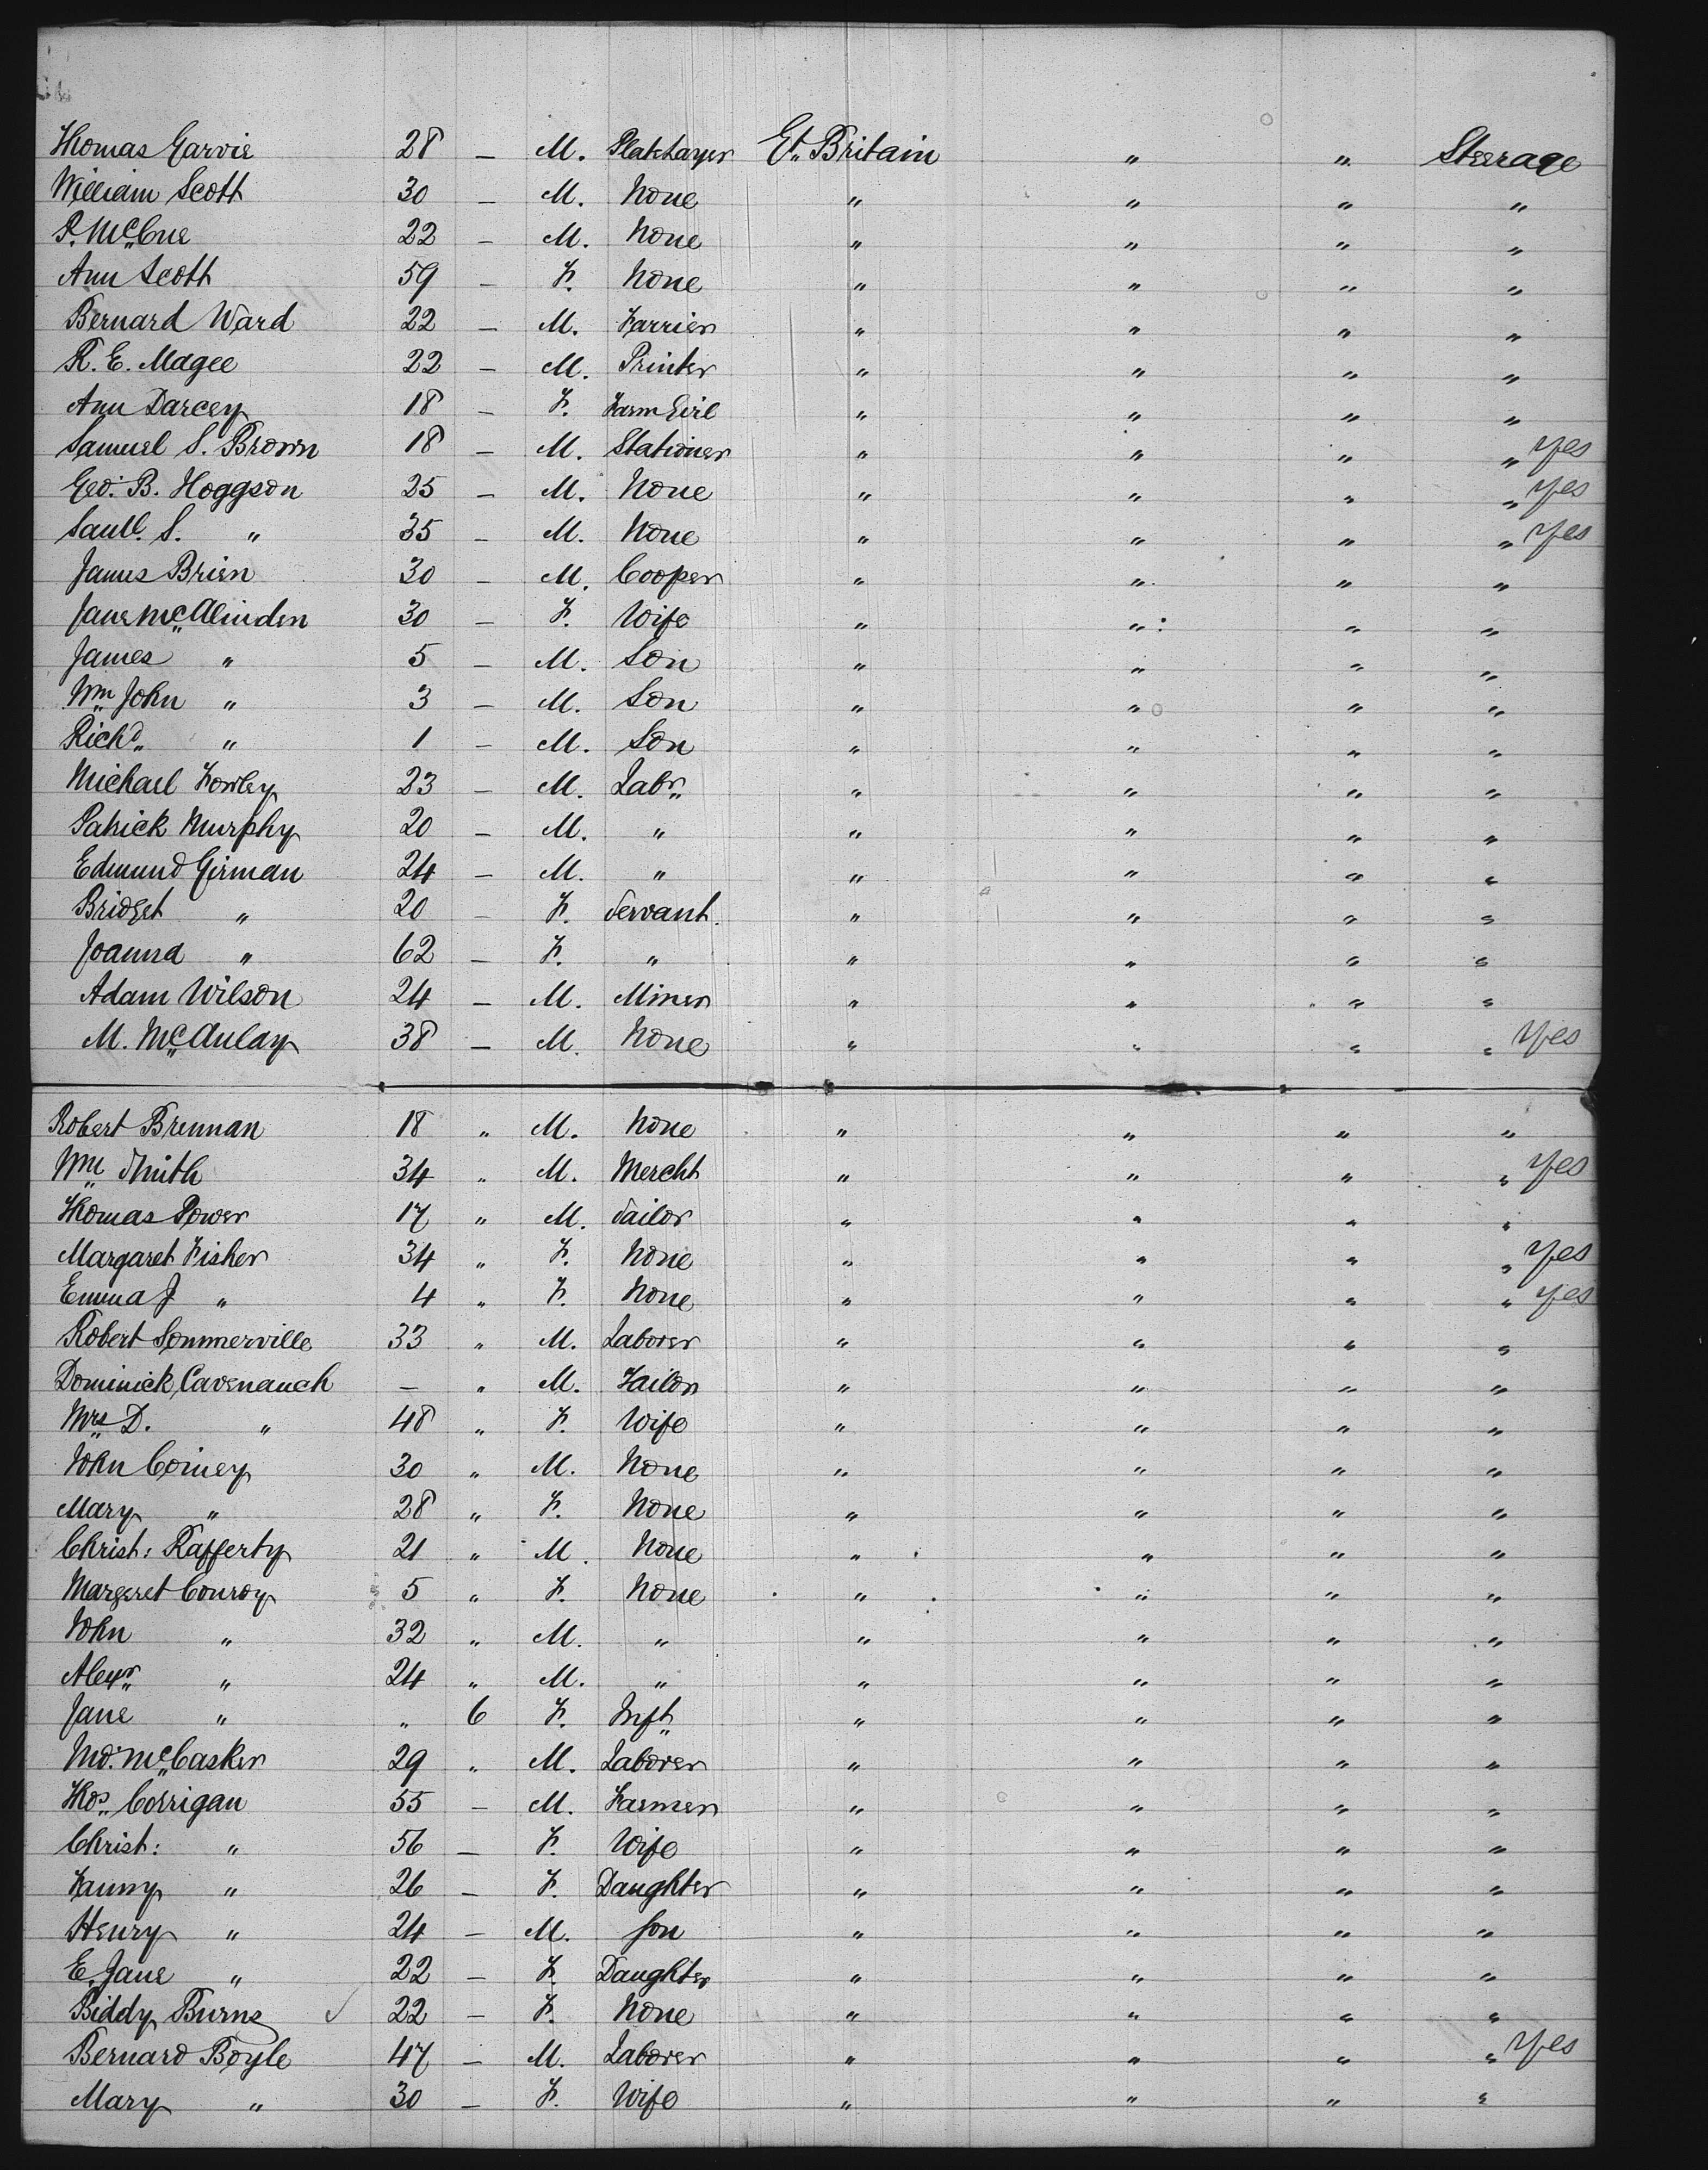 Thomas Garvie 28 – M. Platelayer Gt. Britain " " Steerage
William Scott 30 – M. None " " " "
P. McCue 22 – M. None " " " "
Ann Scott 59 – F. None " " " "
Bernard Ward 22 – M. Farrier " " " "
R. E. Magee 22 – M. Printer " " " "
Ann Darcey 18 – F. Farm Girl " " " "
Samuel S. Brown 18 – M. Stationer " " " " yes
Geo. B. Hoggson 25 – M. None " " " " yes
Saml. S. " 35 – M. None " " " " yes
James Brien 30 – M. Cooper " " " "
Jane McAlinden 30 – F. Wife " " " "
James " 5 – M. Son " " " "
Wm John " 3 – M. Son " " " "
Richd " 1 – M. Son " " " "
Michael Fowley 23 – M. Labr " " " "
Patrick Murphy 20 – M. " " " " "
Edmund Girman 24 – M. " " " " "
Bridget " 20 – F. Servant. " " " "
Joanna " 62 – F. " " " " "
Adam Wilson 24 – M. Miner " " " "
M. McAulay 38 – M. None " " " " yes
Robert Brennan 18 " M. None " " " "
Wm Smith 34 " M. Mercht " " " " yes
Thomas Power 17 " M. Sailor " " " "
Margaret Fisher 34 " F. None " " " " yes
Emma J " 4 " F. None " " " " yes
Robert Sommerville 33 " M. Laborer " " " "
Dominick Cavenauch – " M. Tailor " " " "
Mrs D. " 48 " F. Wife " " " "
John Coiney 30 " M. None " " " "
Mary " 28 " F. None " " " "
Christ: Rafferty 21 " M. None " " " "
Margeret Conroy 5 " F. None " " " "
John " 32 " M. " " " " "
Alexr " 24 " M. " " " " "
Jane " " 6 F. Inft " " " "
McCasker 29 " M. Laborer " " " "
Thos Corrigan 55 – M. Farmer " " " "
Christ: " 56 – F. Wife " " " "
Fanny " 26 – F. Daughter " " " "
Henry " 24 – M. Son " " " "
E. Jane " 22 – F. Daughter " " " "
Biddy Burns ✓ 22 – F. None " " " "
Bernard Boyle 47 – M. Laborer " " " " yes
Mary " 30 – F. Wife " " " "